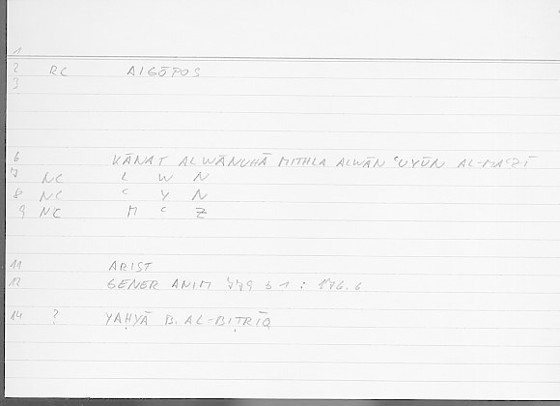 1
2 RC AIGŌPOS
3
6 KĀNAT ALWĀNUHĀ MITHLA ALWĀN ʿUYŪN AL-MAʿZĪ
7 NC L W N
8 NC ʿ Y N
9 NC M ʿ Z
11 ARIST
12 GENER ANIM 779 b 1 : 176.6
14 ? YAḤYĀ B. AL-BIṬRĪQ